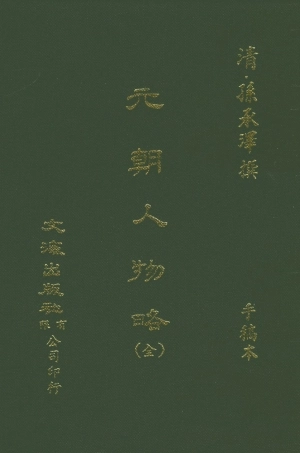 清·孫承澤撰
手稿本
元朝人物略
(全)
文海出版社
有限公司印行